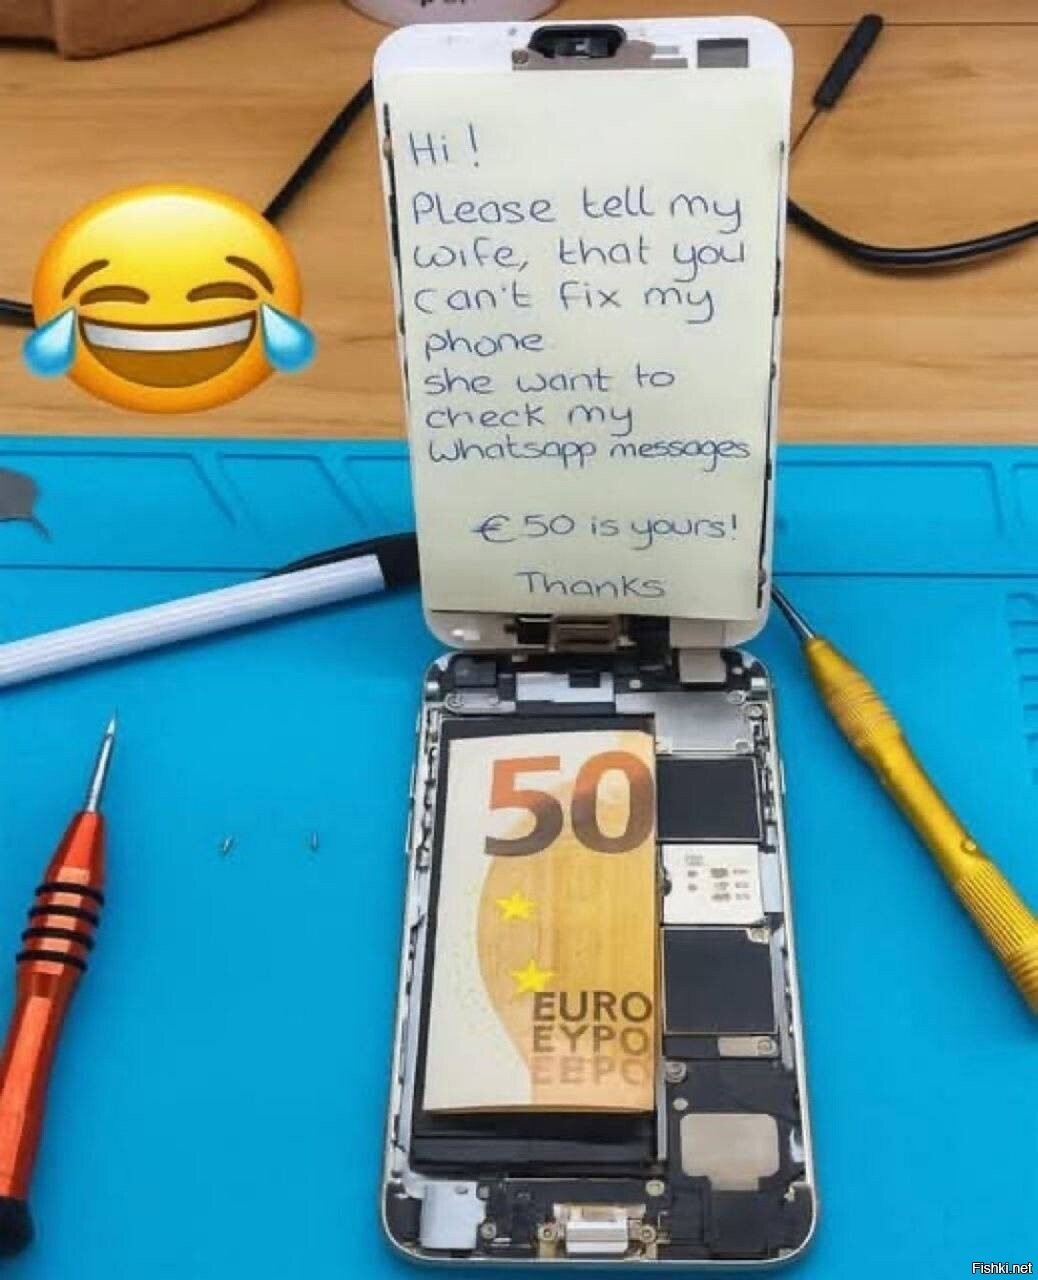 Hi !
Please tell my
wife, that you
can't fix my
phone
she want to
check my
Whatsapp messages
€ 50 is yours!
Thanks
50
EURO
EYPO
EBPO
Fishki.net